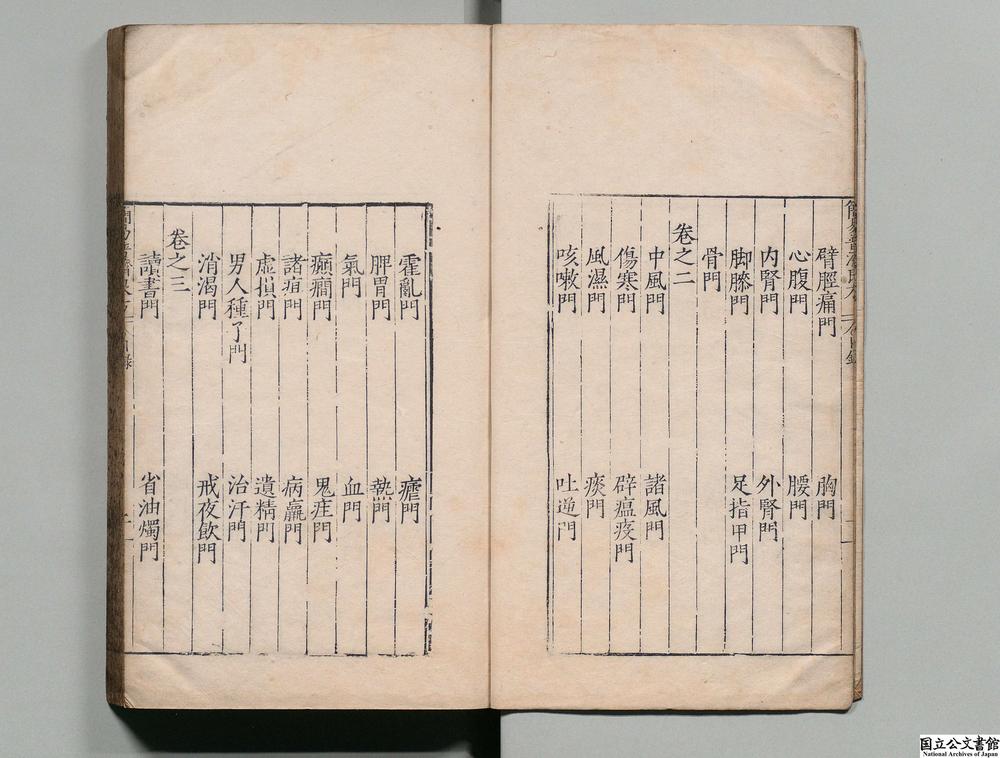 臂脛痛門　胸門
心腹門　腰門
内腎門　外腎門
脚膝門　足指甲門
骨門
卷之二
中風門　諸風門
傷寒門　辟瘟疫門
風濕門　痰門
咳嗽門　吐逆門
霍亂門　瘧門
脾胃門　熱門
氣門　血門
癲癎門　鬼疰門
諸疸門　病羸門
虛損門　遺精門
男人種子門　治汗門
消渴門　戒夜飲門
卷之三
讀書門　省油燭門
国立公文書館
National Archives of Japan